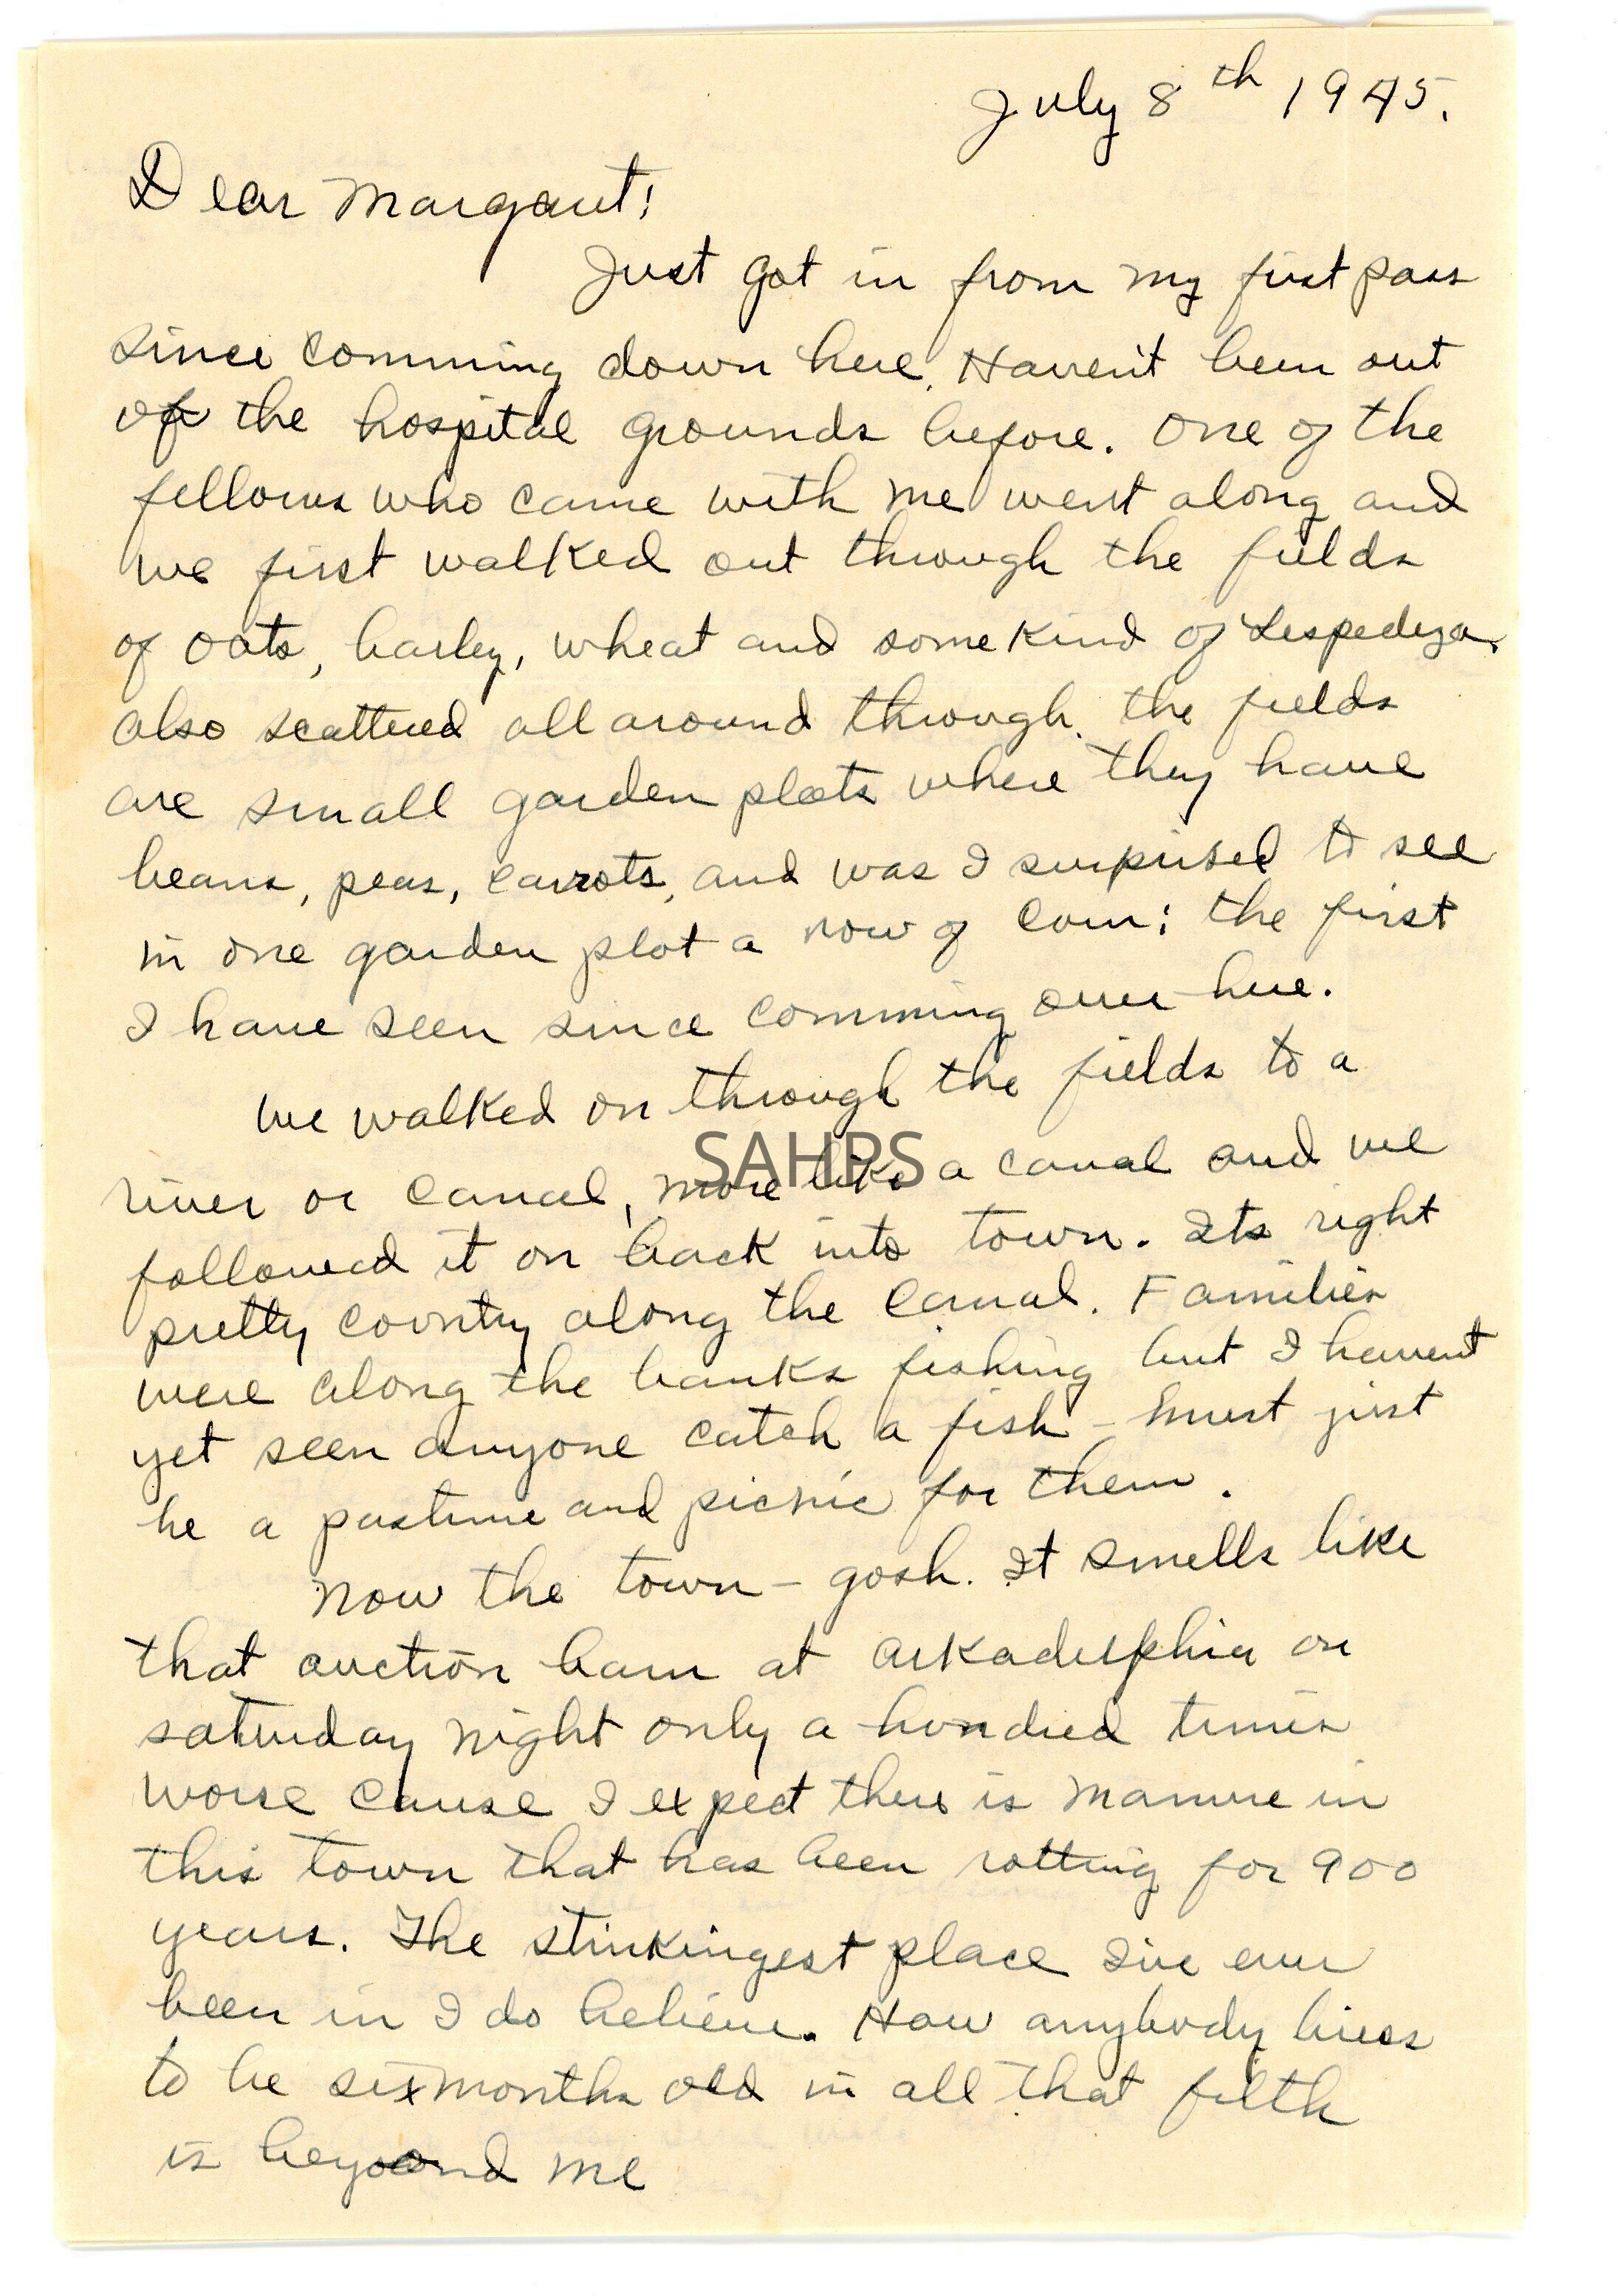 July 8th 1945.
Dear Margaret!
Just got in from my first pass
since comming down here. Haven't been out
of the hospital grounds before. One of the
fellows who came with me went along and
we first walked out through the fields
of oats, barley, wheat and some kind of Lespedeza.
Also scattered all around through the fields
are small garden plots where they have
beans, peas, carrots, and was I surprised to see
in one garden plot a row of corn; the first
I have seen since comming over here.
We walked on through the fields to a
SAHPS
river or canal, more like a canal and we
followed it on back into town. Its right
pretty country along the canal. Families
were along the banks fishing but I havent
yet seen anyone catch a fish - must just
be a pastime and picnic for them.
Now the town - gosh. It smells like
that auction barn at Arkadelphia on
saturday night only a hundred times
worse cause I expect there is manure in
this town that has been rotting for 900
years. The stinkingest place I've ever
been in I do believe. How anybody lives
to be six months old in all that filth
is beyond me